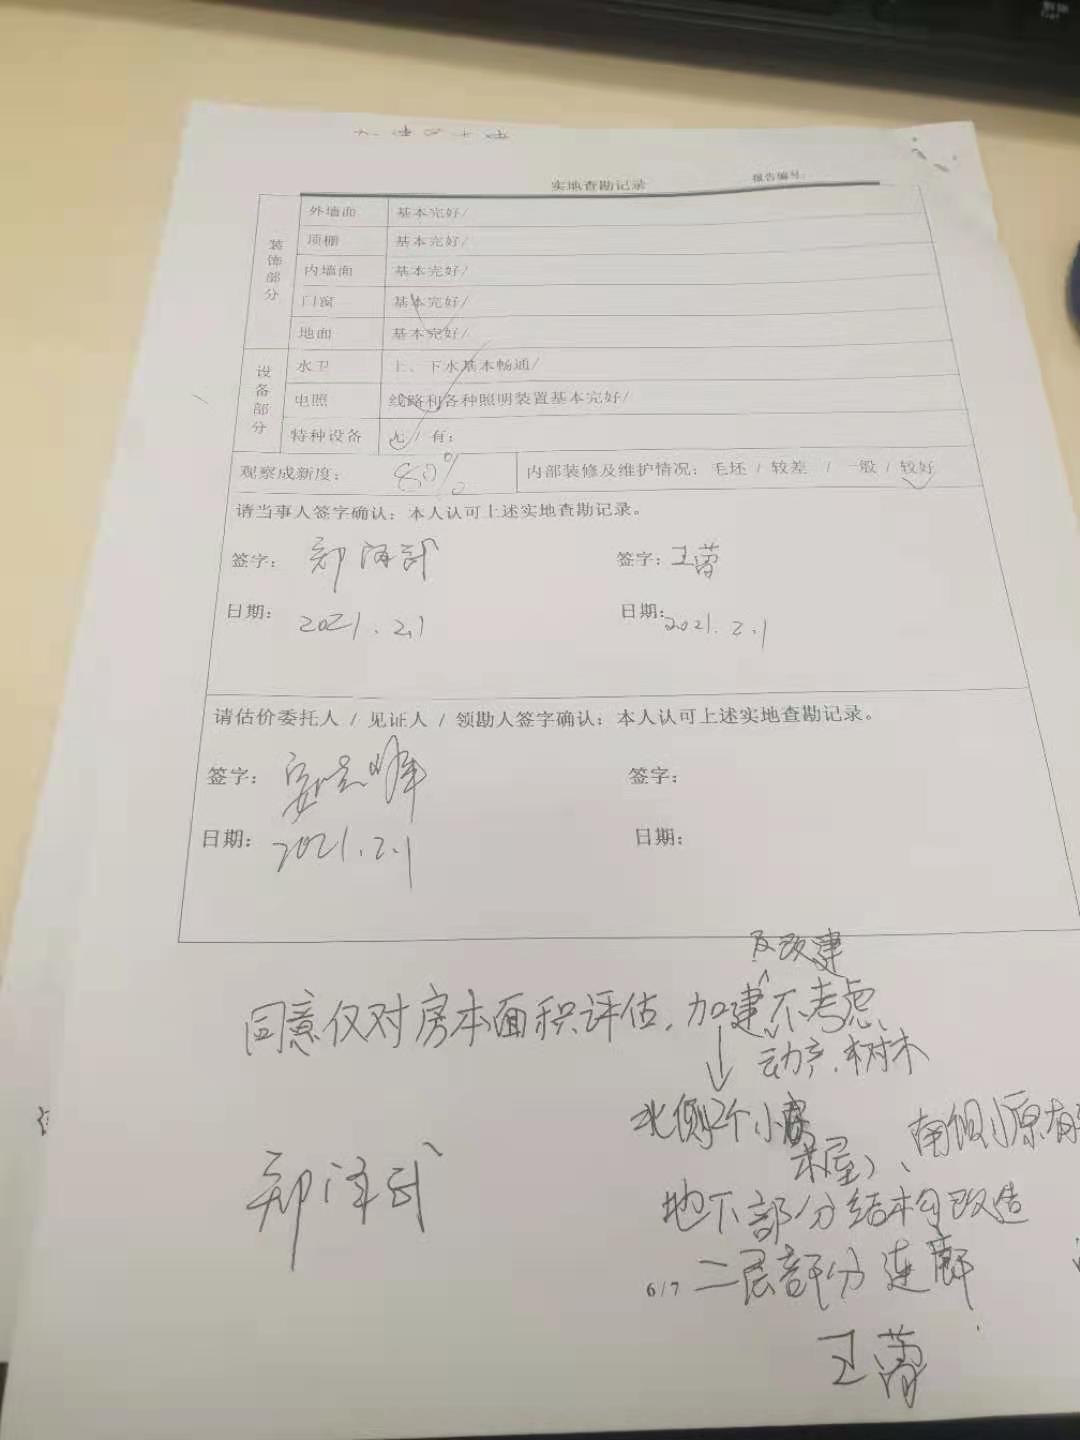 实地查勘记录 报告编号:
装饰部分
外墙面 基本完好/
顶棚 基本完好/
内墙面 基本完好/
门窗 基本完好/
地面 基本完好/
设备部分
水卫 上、下水基本畅通/
电照 线路和各种照明装置基本完好/
特种设备 无 / 有:
观察成新度: 80% 内部装修及维护情况: 毛坯 / 较差 / 一般 / 较好
请当事人签字确认: 本人认可上述实地查勘记录。
签字: 郑泽武 签字: 王蕾
日期: 2021.2.1 日期: 2021.2.1
请估价委托人 / 见证人 / 领勘人签字确认: 本人认可上述实地查勘记录。
签字: 签字:
日期: 2021.2.1 日期:
及改建
同意仅对房本面积评估,加建不考虑
动产、树木
北侧2个小房
木屋)、南侧原有
地下部分结构改造
郑泽武
6/7 二层部分连廊
王蕾